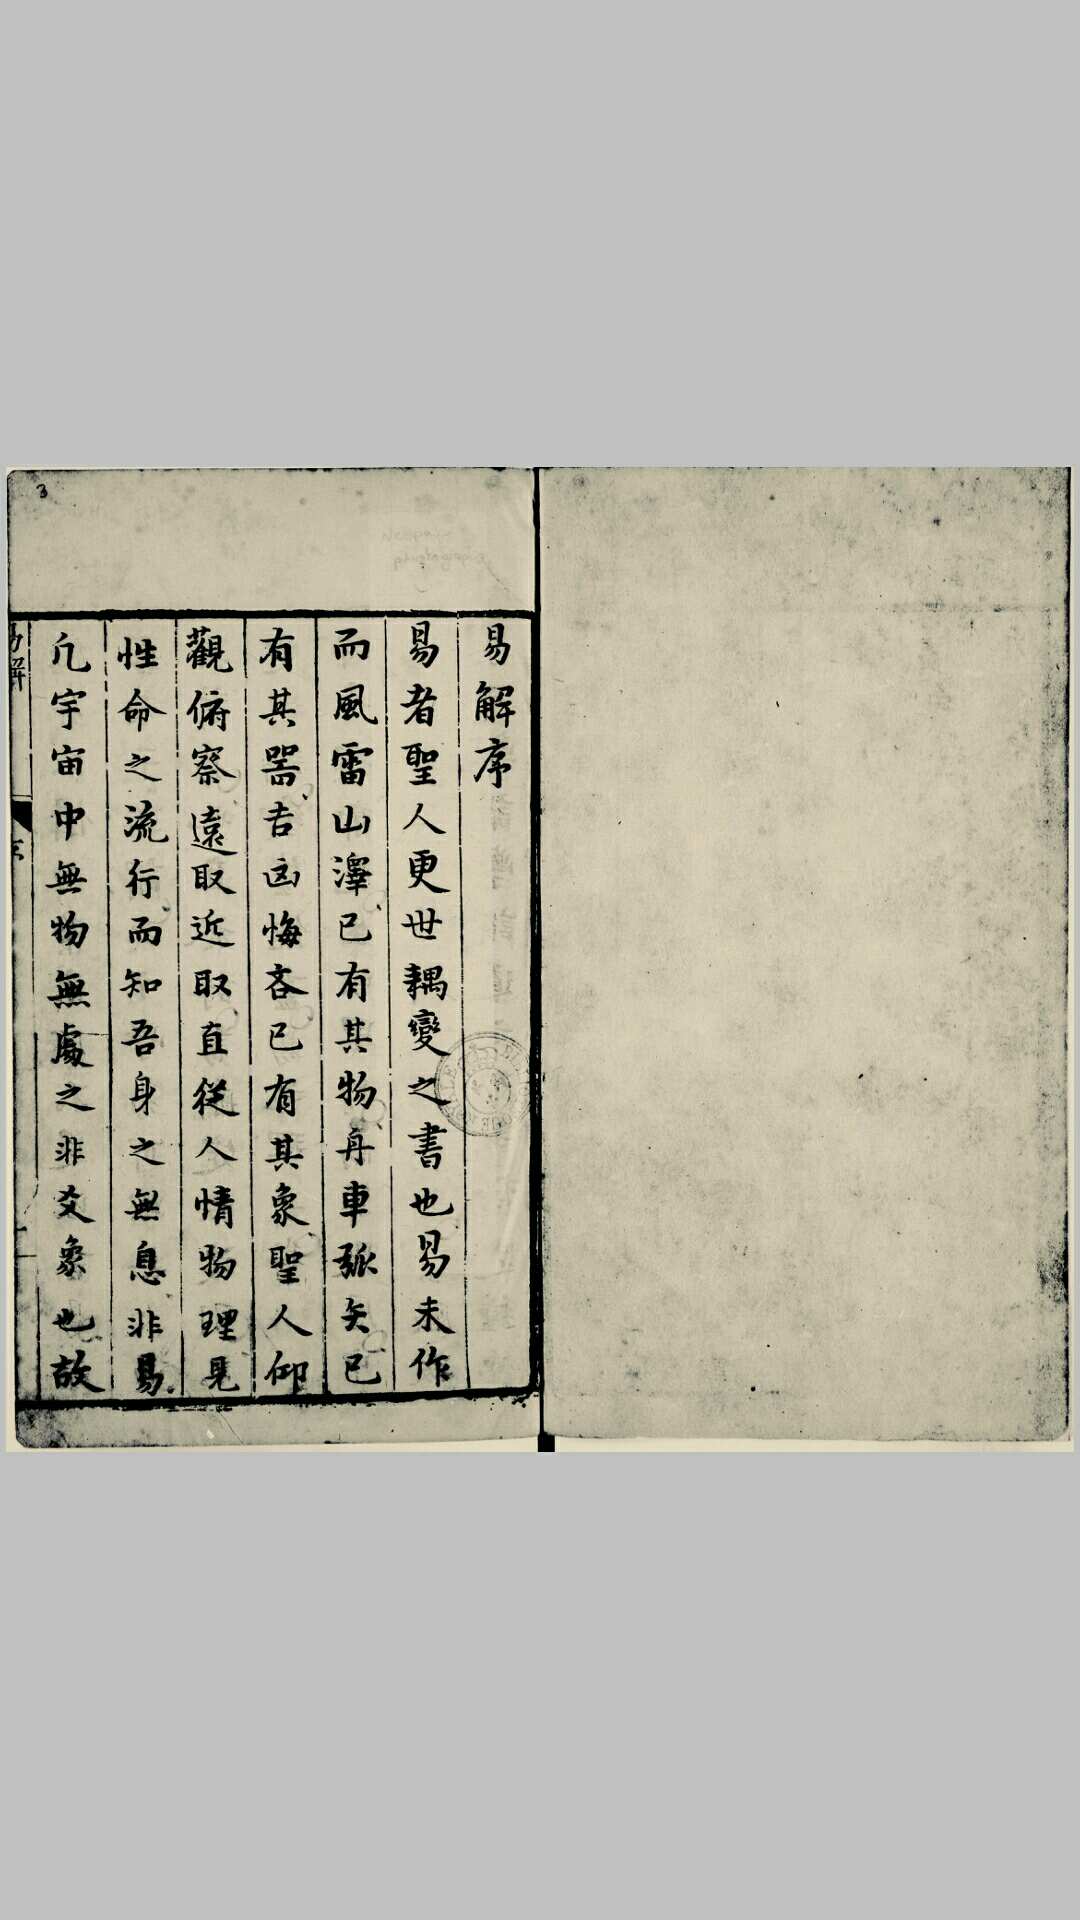 3
易解序
易者聖人更世耦變之書也易未作
而風雷山澤已有其物舟車弧矢已
有其器吉凶悔吝已有其象聖人仰
觀俯察遠取近取直從人情物理見
性命之流行而知吾身之無息非易
凡宇宙中無物無處之非爻象也故
易解